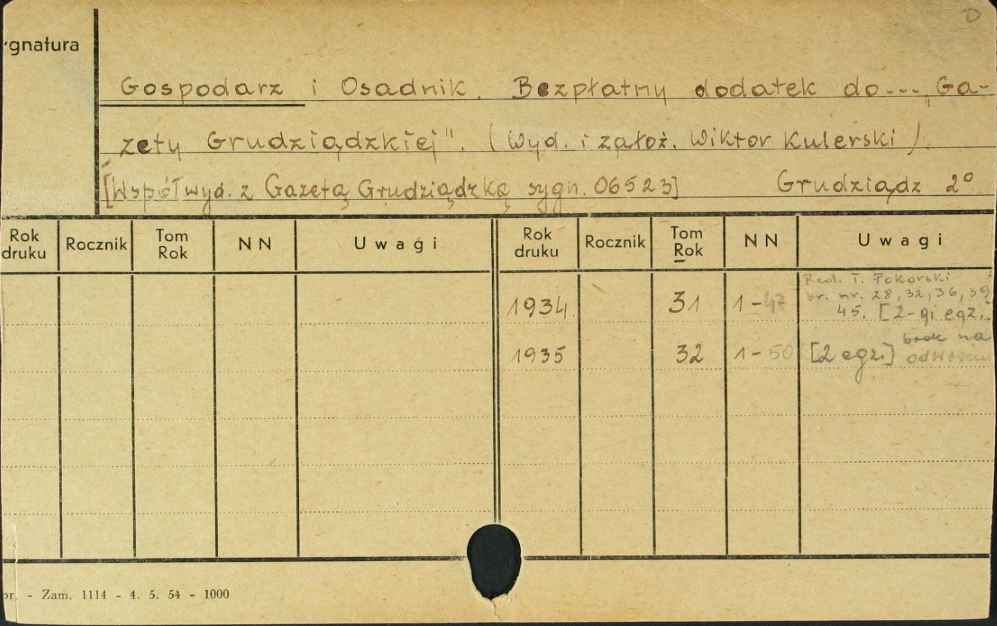 D
ygnatura
Gospodarz i Osadnik. Bezpłatny dodatek do... „Ga-
zety Grudziądzkiej". (Wyd. i założ. Wiktor Kulerski).
[Współwyd. z Gazetą Grudziądzką sygn. 06523] Grudziądz 2°.
Rok druku Rocznik Tom Rok NN Uwagi Rok druku Rocznik Tom Rok NN Uwagi
Red. T. Pokorski
br. nr. 28, 32, 36, 39
1934. 31 1-47 45. [2-gi egz.
1935 32 1-50 [2 egz.] brak na
or. - Zam. 1114 - 4. 5. 54 - 1000